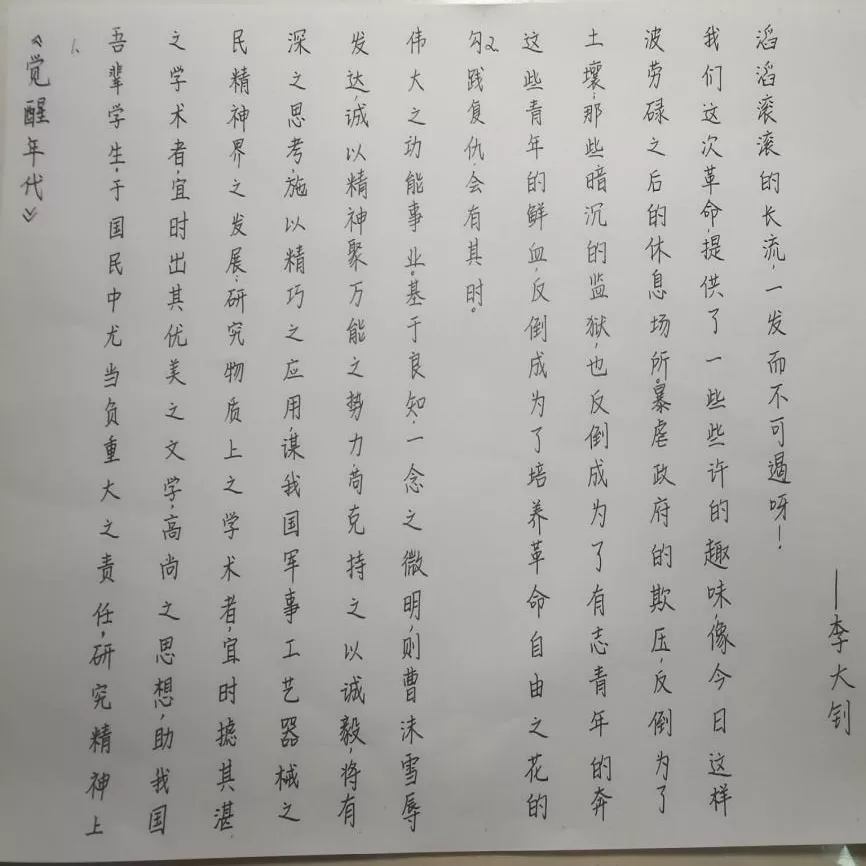 《觉醒年代》
1、
吾辈学生,于国民中尤当负重大之责任,研究精神上
之学术者,宜时出其优美之文学,高尚之思想,助我国
民精神界之发展;研究物质上之学术者,宜时摅其湛
深之思考,施以精巧之应用,谋我国军事工艺器械之
发达,诚以精神聚万能之势力苟克持之以诚毅,将有
伟大之功能事业。基于良知,一念之微明,则曹沫雪辱
勾践复仇,会有其时。
2、
这些青年的鲜血,反倒成为了培养革命自由之花的
土壤;那些暗沉的监狱,也反倒成为了有志青年的奔
波劳碌之后的休息场所。暴虐政府的欺压,反倒为了
我们这次革命,提供了一些些许的趣味,像今日这样
滔滔滚滚的长流,一发而不可遏呀!
——李大钊